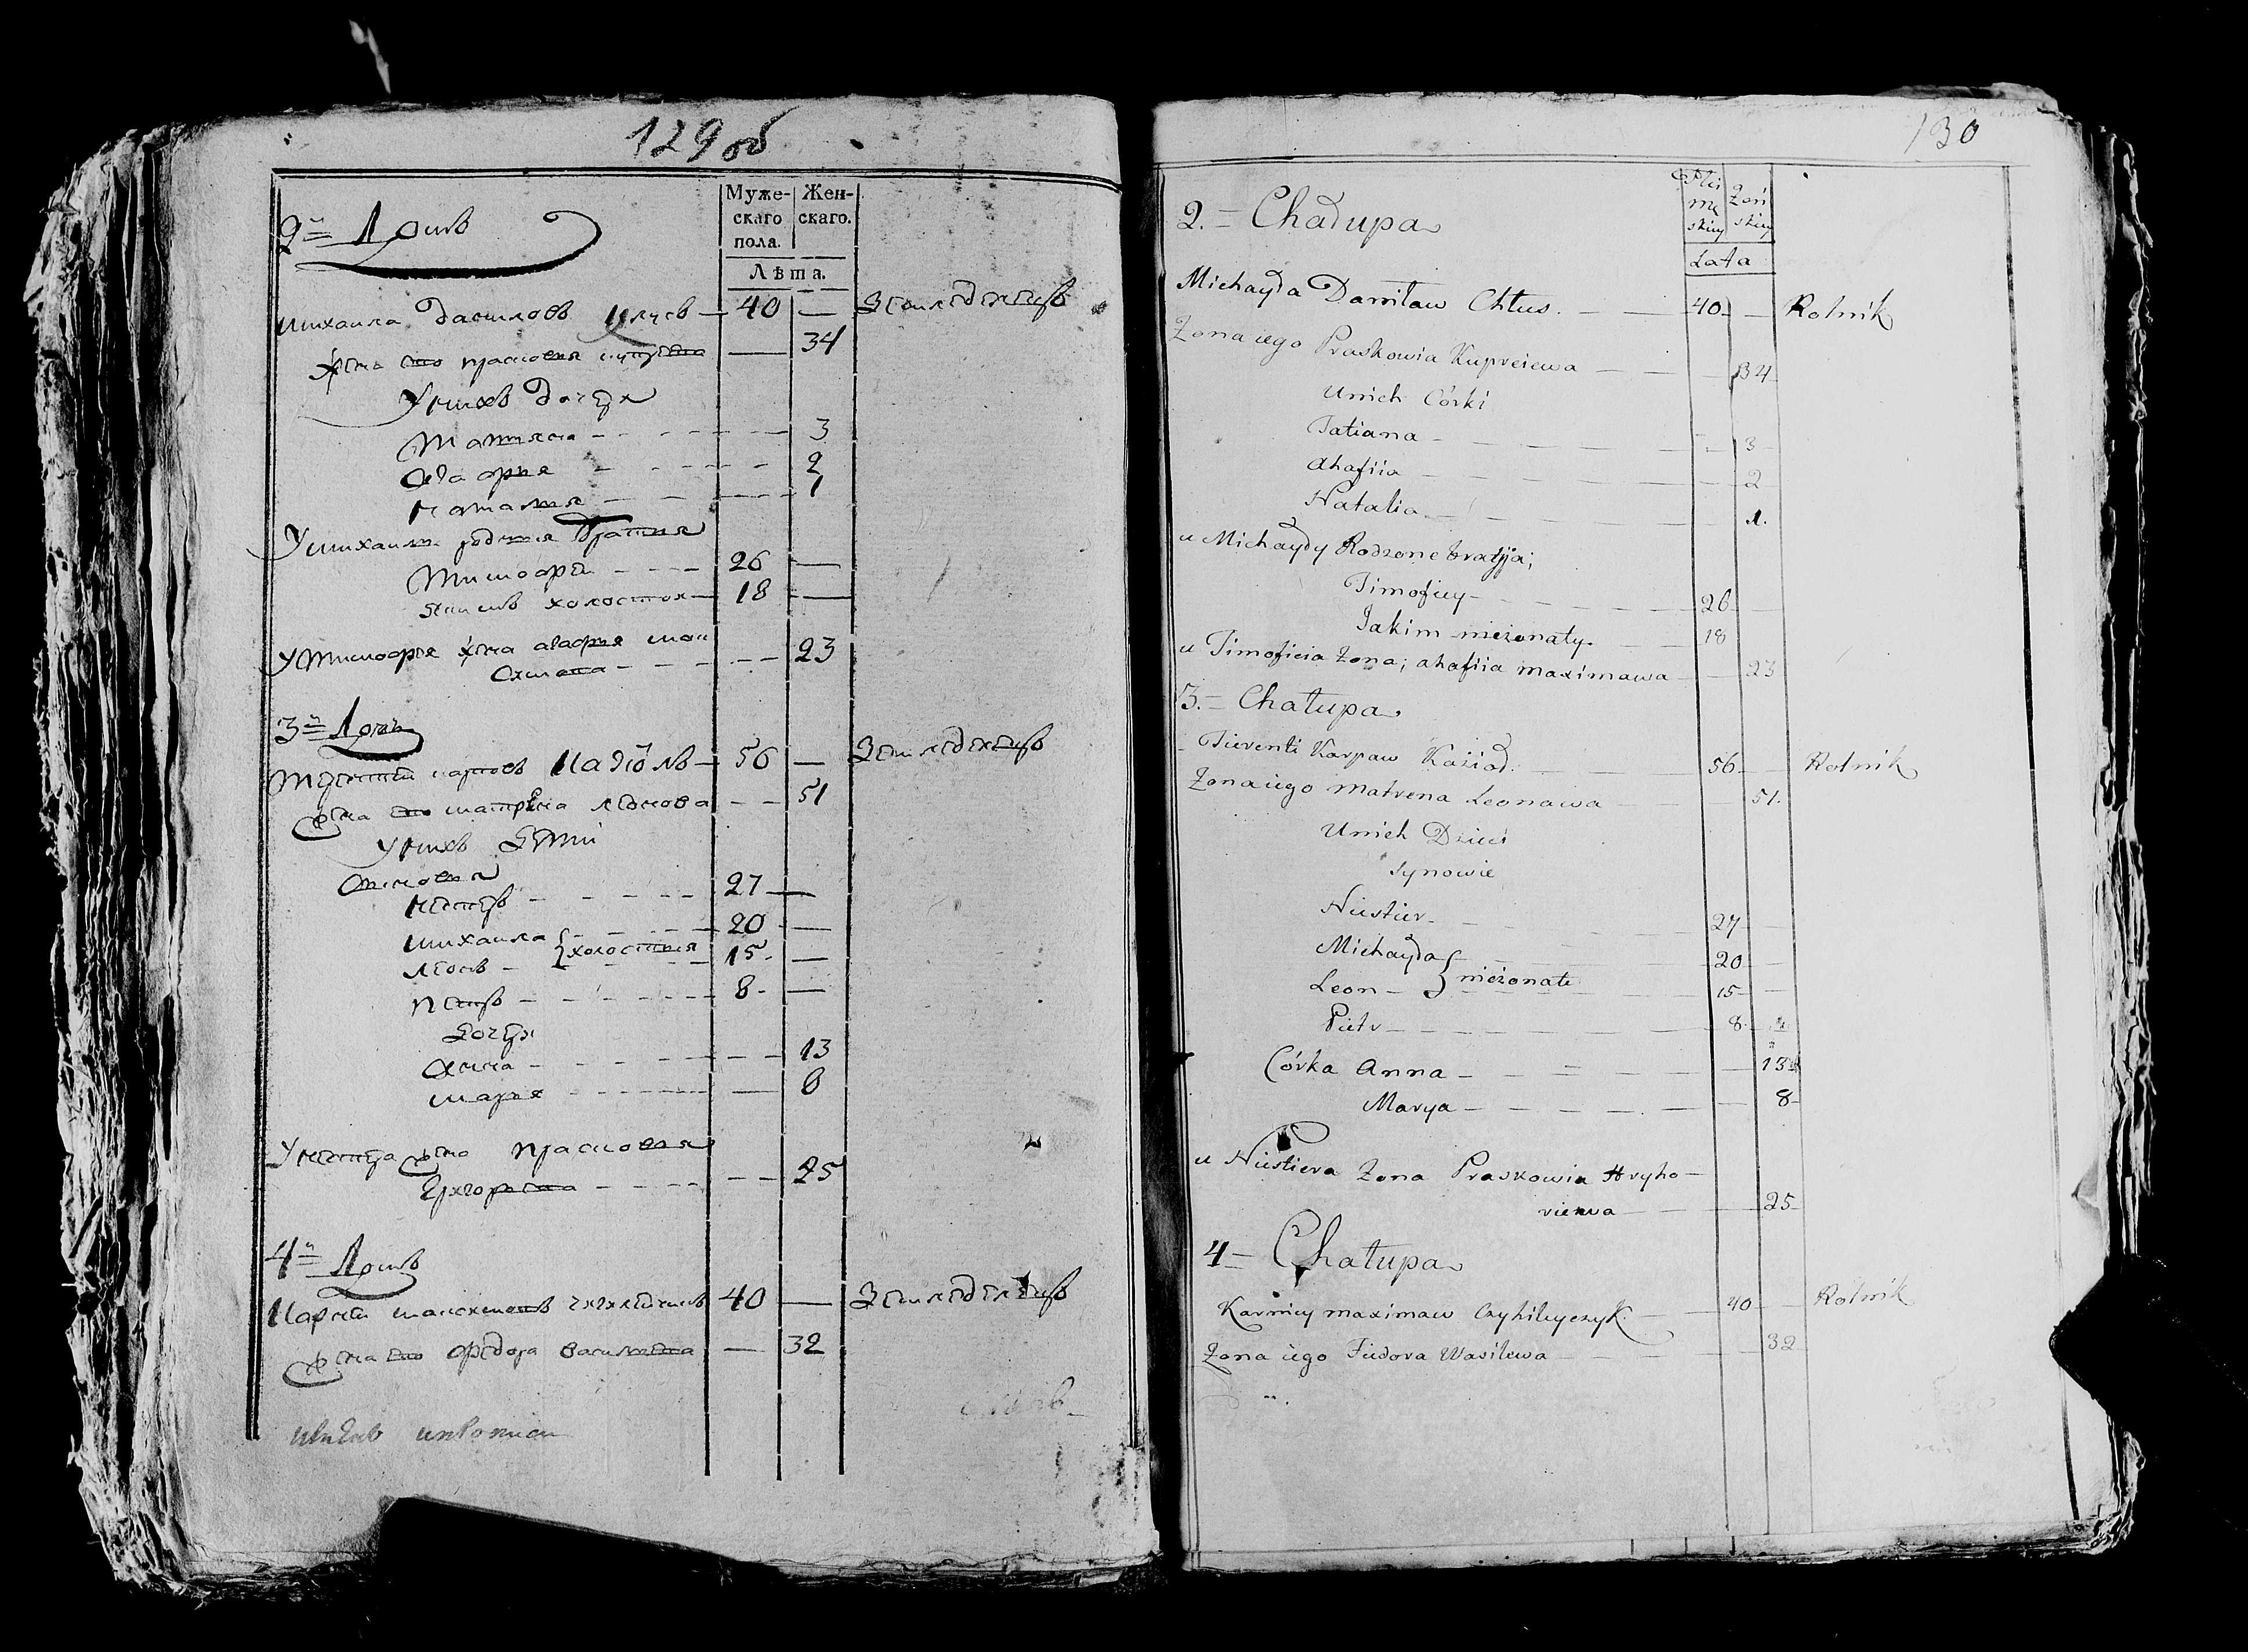 129 об
Муже- Жен-
скаго скаго.
пола.
Лѣта.
2й Домъ
Михаила Даниловъ Клусъ — 40 — Земледелецъ
Жена его Прасковя Купреева — 34
У нихъ дочери
Татияна - - - 3
Агафия - - - 2
Наталя - - - 1
У Михаилы родныя братия
Тимофей - - - 26 —
Якимъ холостой — 18 —
У Тимофея жена агафия Мак
симова - - - 23
3й Домъ
Терентей Карповъ — 56 — Земледелецъ
жена его матрена леонова - - 51
У нихъ дети
Сыновя
Нестеръ - - - 27 —
Михаила - - - 20 —
леонъ - } холостыя 15 —
Петръ - - - 8 —
дочери
Анна - - - 13
Маря - - - 8
У Нестера жена Прасковя
Григорева - - - 25
4й Домъ
Карней Максимовъ 40 — Земледелецъ
жена его Федора Василева — 32
130
Mę Żeń
skiey skiey
Lata
2. = Chałupa
Michayła Daniław Chłus. — 40 — Rolnik
Żona iego Praskowia Kupreiewa — 34
Unich Córki
Tatiana - - - 3
Ahafiia - - - 2
Natalia - - - 1.
u Michayły Rodzone bratjia;
Timofiey - - - 26 —
Jakim nieżonaty. 18
u Timofieia Żona; ahafiia maximawa — 23
3. = Chałupa
Tierenti Karpaw Kazioł. — 56 — Rolnik
Żona iego Matrena Leonawa — 51.
Unich Dzieci
Synowie
Niestier - - - 27 —
Michayła - - - 20 —
Leon - } nieżonate 15 —
Pietr - - - 8 —
Córka Anna - - - 13
Marya - - - 8
u Niestiera Żona Praskowia Hryho-
riewa — 25
4 - Chałupa
Karniey maximaw Czyhileyczyk. — 40 — Rolnik
Żona iego Fiedora Wasilewa — 32